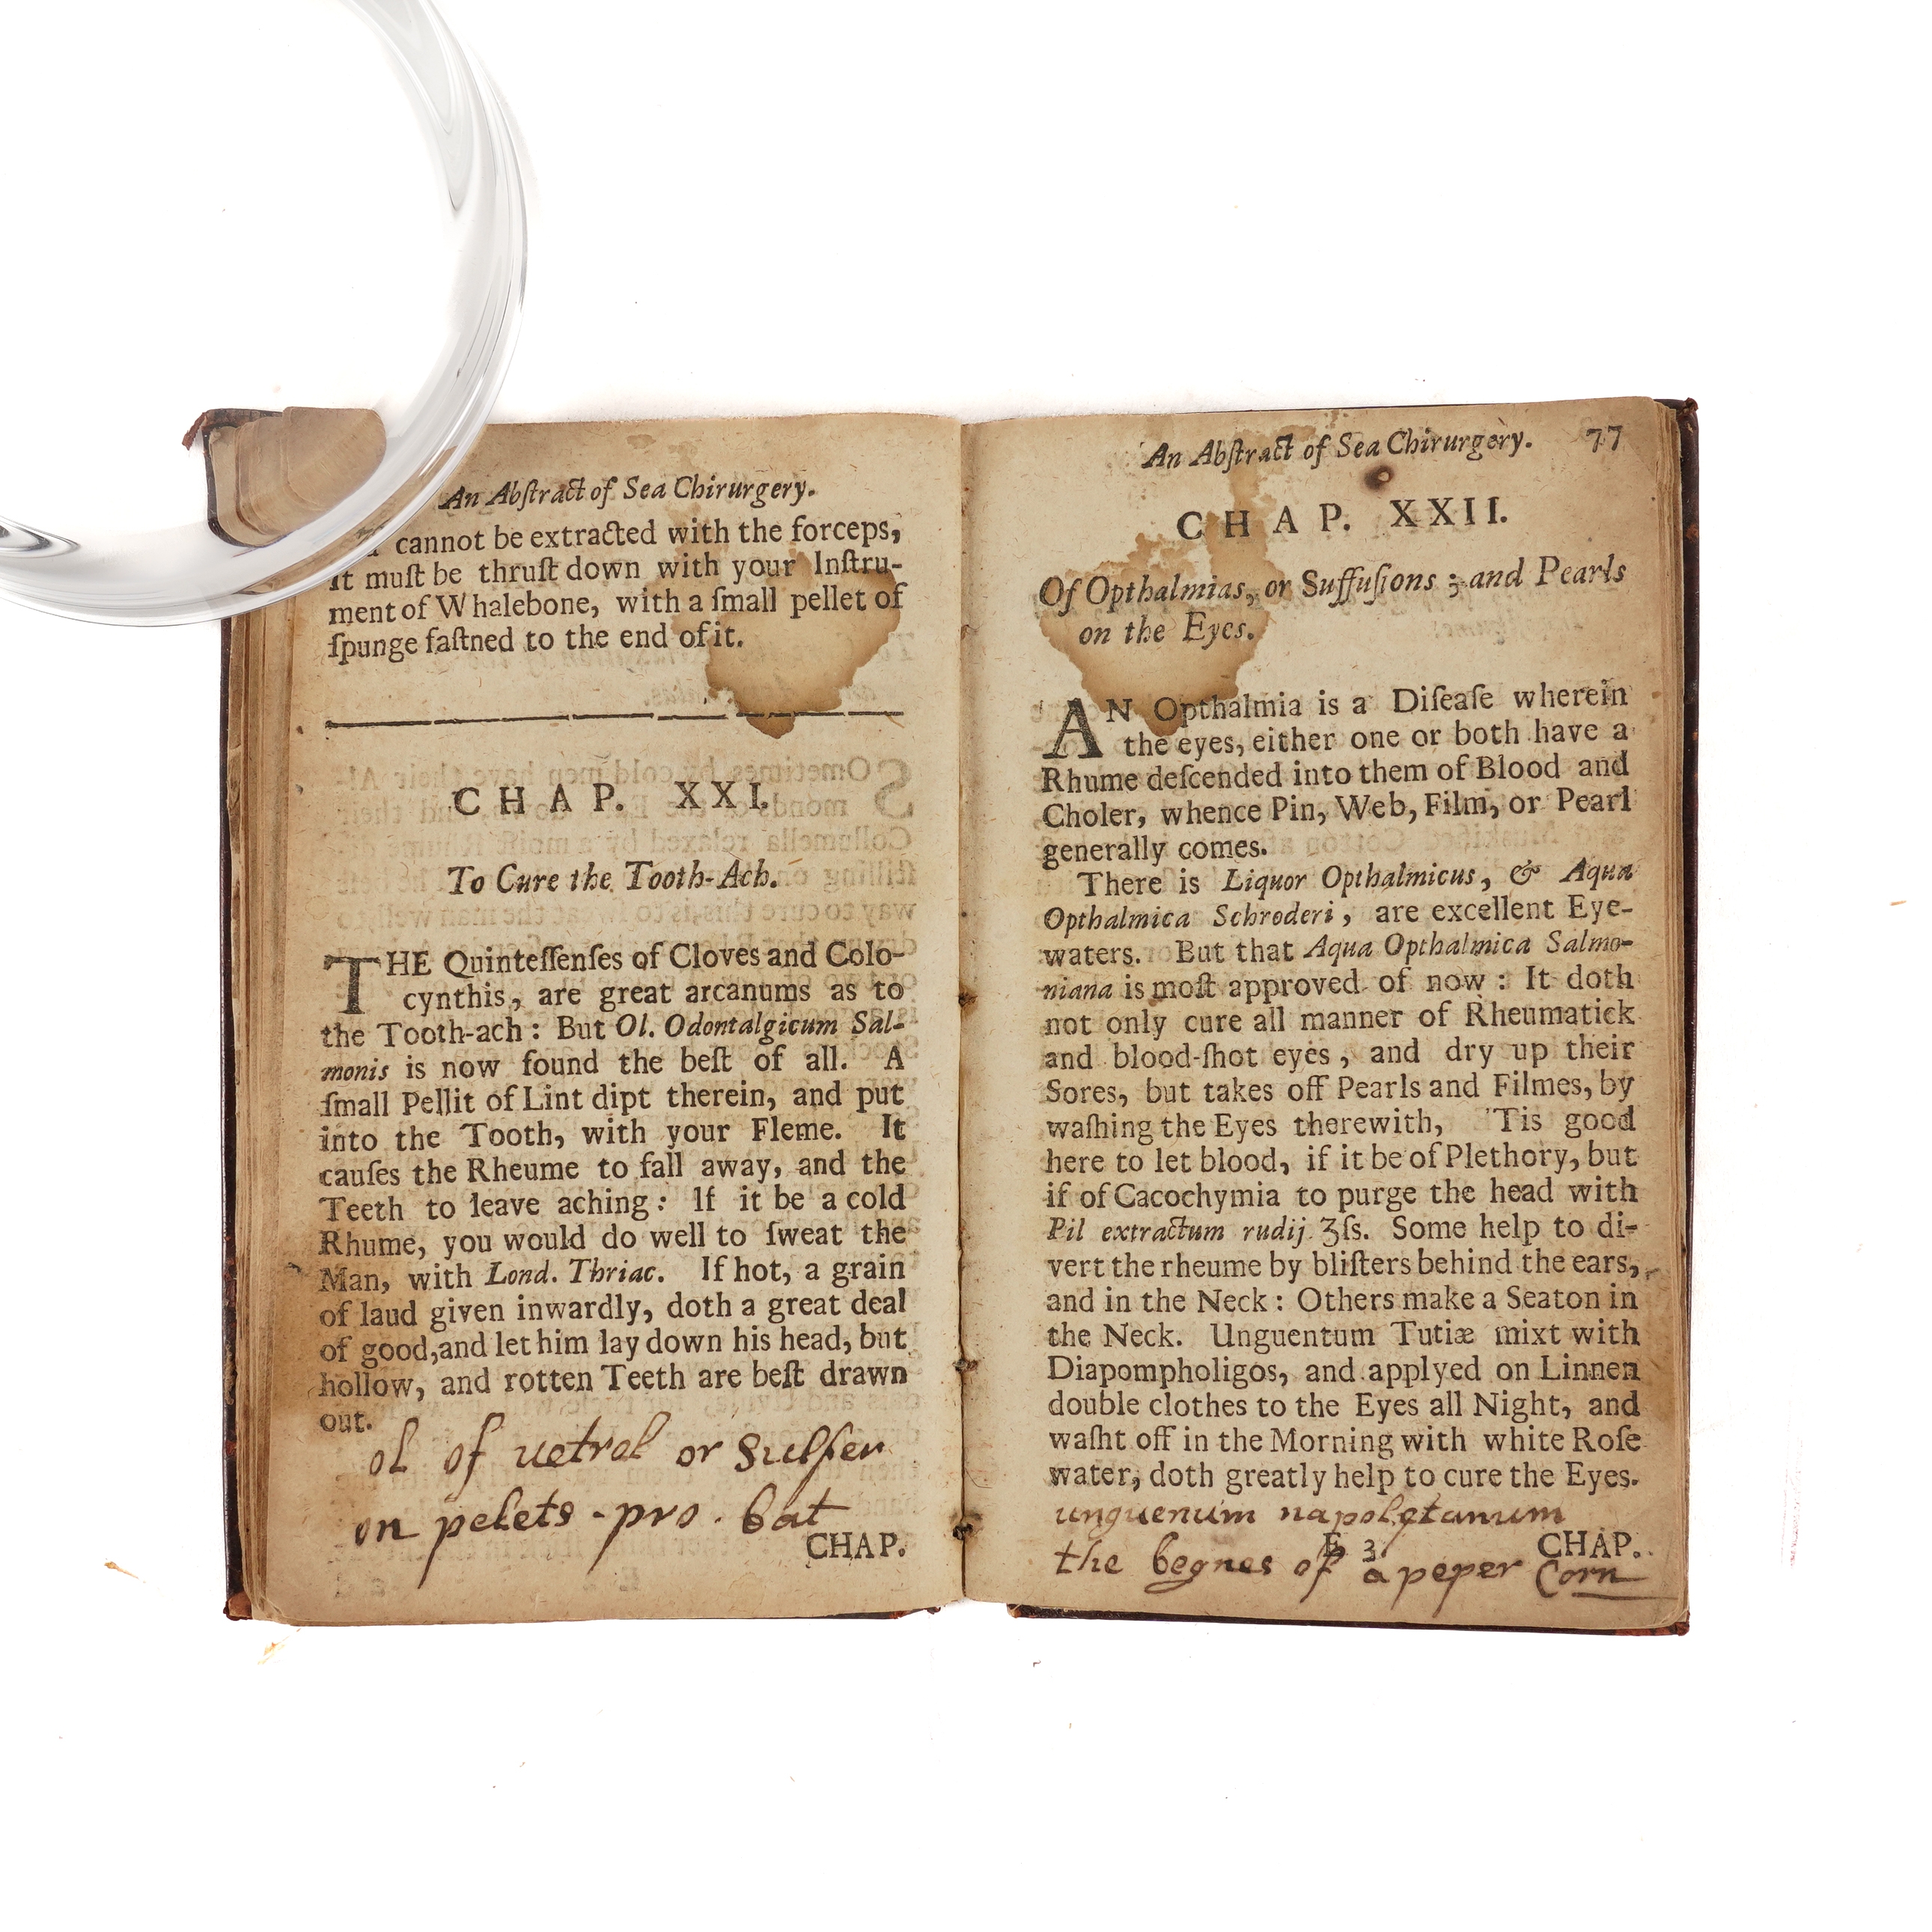 An Abſtract of Sea Chirurgery.
cannot be extracted with the forceps,
it muſt be thruſt down with your Inſtru-
ment of Whalebone, with a ſmall pellet of
ſpunge faſtned to the end of it.
CHAP. XXI.
To Cure the Tooth-Ach.
THE Quinteſſenſes of Cloves and Colo-
cynthis, are great arcanums as to
the Tooth-ach: But Ol. Odontalgicum Sal-
monis is now found the beſt of all. A
ſmall Pellit of Lint dipt therein, and put
into the Tooth, with your Fleme. It
cauſes the Rheume to fall away, and the
Teeth to leave aching: If it be a cold
Rhume, you would do well to ſweat the
Man, with Lond. Thriac. If hot, a grain
of laud given inwardly, doth a great deal
of good,and let him lay down his head, but
hollow, and rotten Teeth are beſt drawn
out.
ol of uetrol or sulfer
on pelets - pro. bat
CHAP.
An Abſtract of Sea Chirurgery. 77
CHAP. XXII.
Of Opthalmias, or Suffuſions; and Pearls
on the Eyes.
AN Opthalmia is a Diſeaſe wherein
the eyes, either one or both have a
Rhume deſcended into them of Blood and
Choler, whence Pin, Web, Film, or Pearl
generally comes.
There is Liquor Opthalmicus, & Aqua
Opthalmica Schroderi, are excellent Eye-
waters. But that Aqua Opthalmica Salmo-
niana is moſt approved of now: It doth
not only cure all manner of Rheumatick
and blood-ſhot eyes, and dry up their
Sores, but takes off Pearls and Filmes, by
waſhing the Eyes therewith, 'Tis good
here to let blood, if it be of Plethory, but
if of Cacochymia to purge the head with
Pil extractum rudij ʒſs. Some help to di-
vert the rheume by bliſters behind the ears,
and in the Neck: Others make a Seaton in
the Neck. Unguentum Tutiæ mixt with
Diapompholigos, and applyed on Linnen
double clothes to the Eyes all Night, and
waſht off in the Morning with white Roſe
water, doth greatly help to cure the Eyes.
unguenum napoletanum
E 3 CHAP.
the begnes of a peper Corn